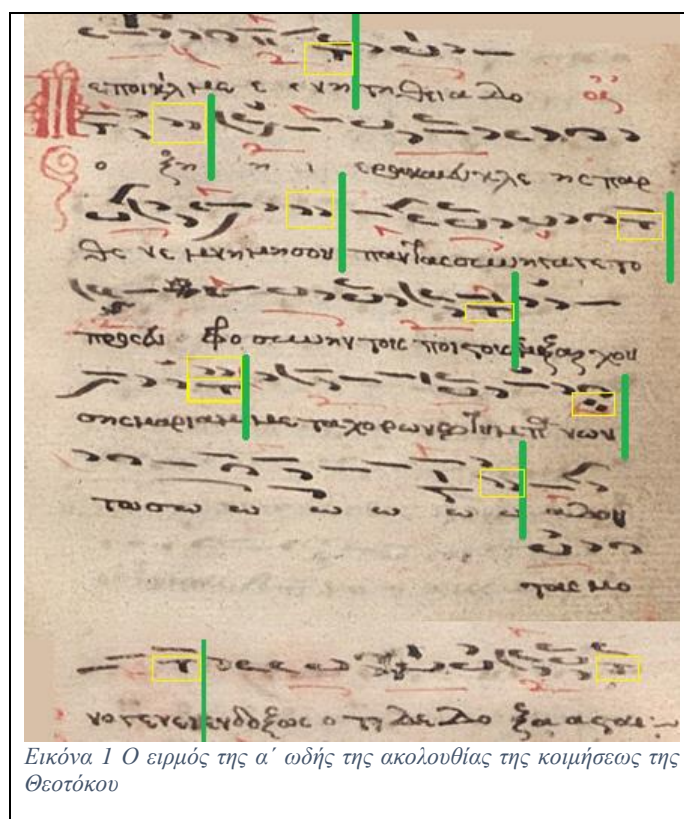 εποικιλ με ε ε νη τη θει α δο
ο ξη η ι ερα και ευκλε ης παρ
θε νε μνημη σου παντας συνηγαγετο
προς ευ φρο συνην τους πιστους εξαρχου
σης μαριαμ με τα χορων τυμπα νων
τω σω ω ω ω ω ω αδον
τας μο
νογενει ενδοξως ο τι δε δο ξα α σται
Εικόνα 1 Ο ειρμός της α΄ ωδής της ακολουθίας της κοιμήσεως της
Θεοτόκου